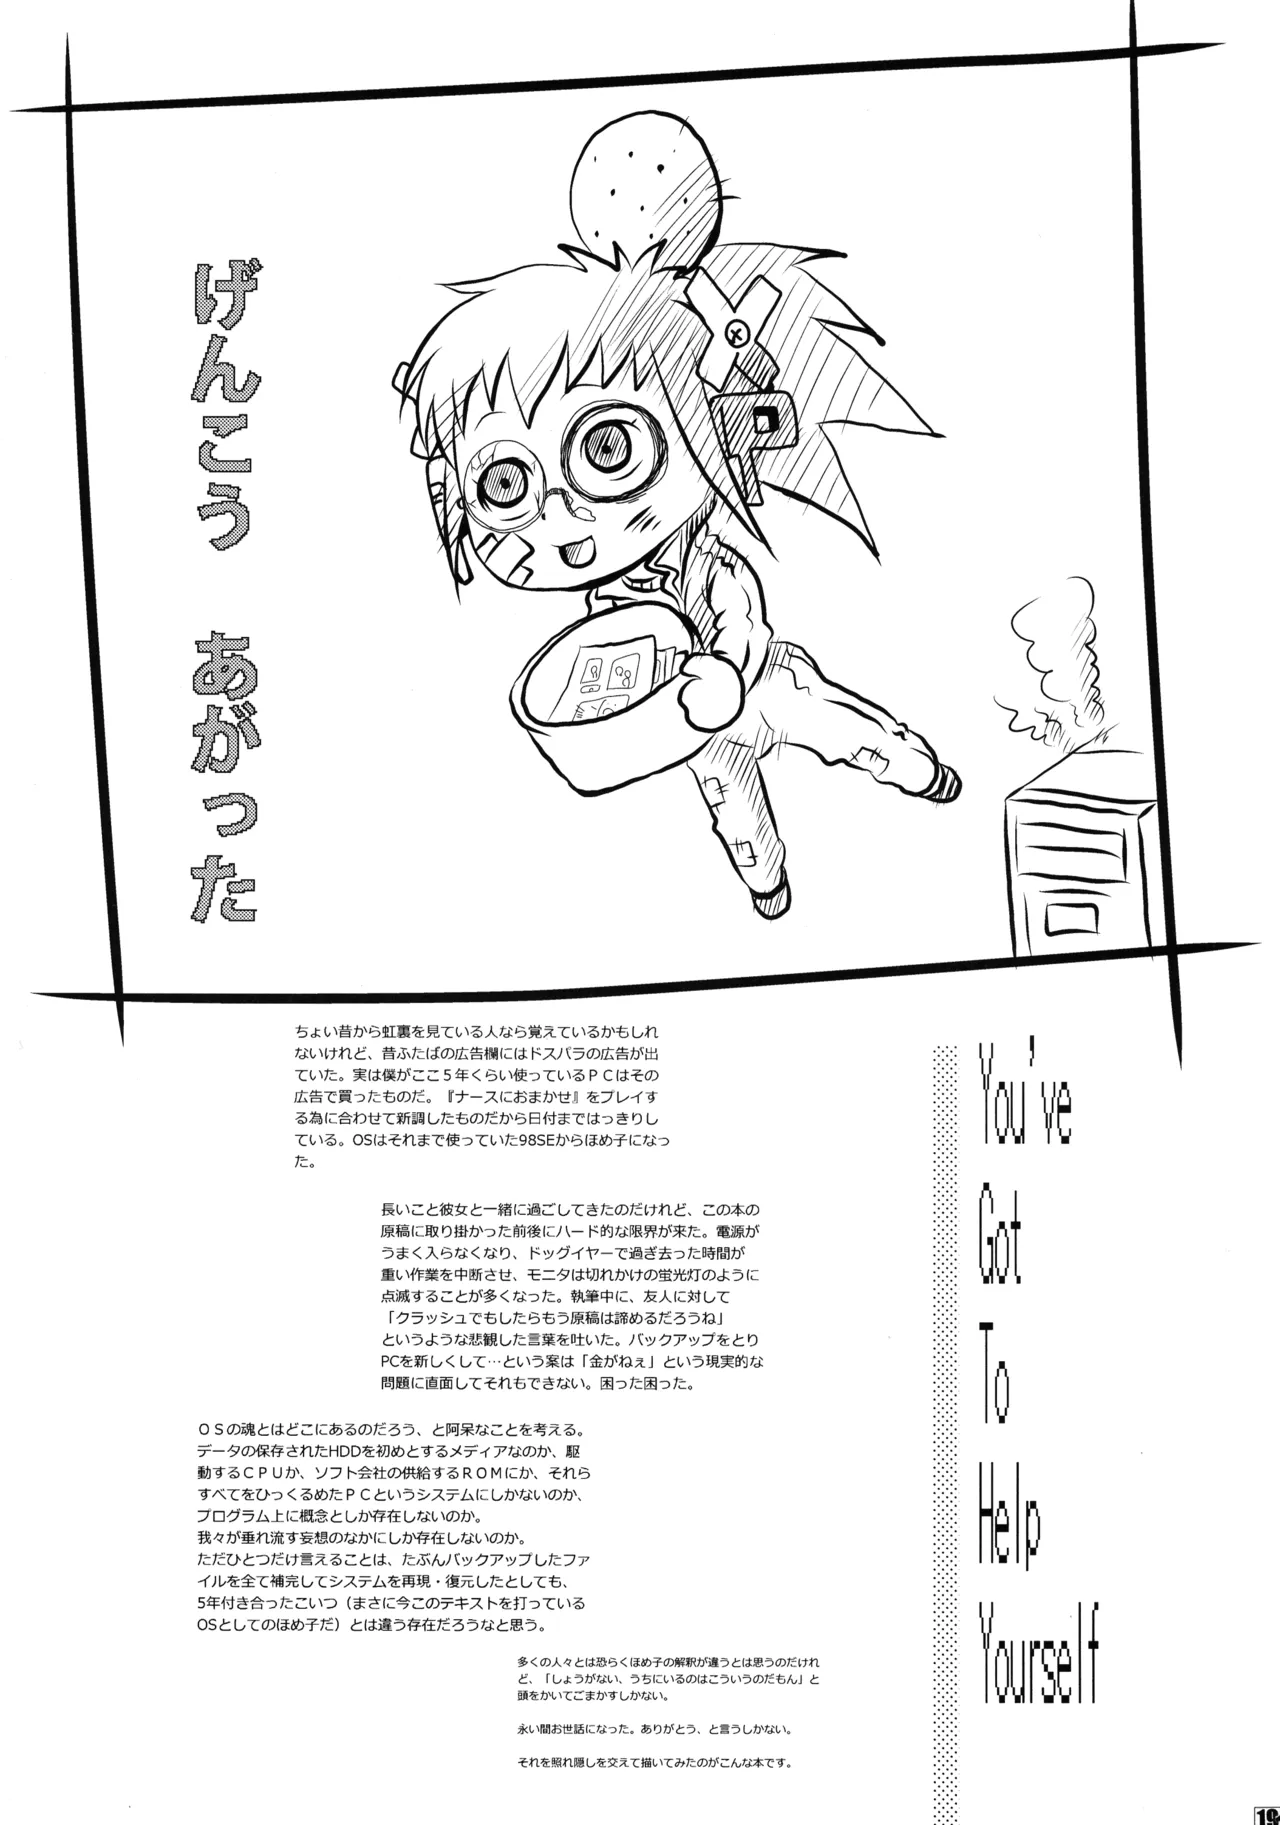 げんこう　あがった
ちょい昔から虹裏を見ている人なら覚えているかもしれ
ないけれど、昔ふたばの広告欄にはドスパラの広告が出
ていた。実は僕がここ５年くらい使っているＰＣはその
広告で買ったものだ。『ナースにおまかせ』をプレイす
る為に合わせて新調したものだから日付まではっきりし
ている。OSはそれまで使っていた98SEからほめ子になっ
た。
長いこと彼女と一緒に過ごしてきたのだけれど、この本の
原稿に取り掛かった前後にハード的な限界が来た。電源が
うまく入らなくなり、ドッグイヤーで過ぎ去った時間が
重い作業を中断させ、モニタは切れかけの蛍光灯のように
点滅することが多くなった。執筆中に、友人に対して
「クラッシュでもしたらもう原稿は諦めるだろうね」
というような悲観した言葉を吐いた。バックアップをとり
PCを新しくして…という案は「金がねぇ」という現実的な
問題に直面してそれもできない。困った困った。
ＯＳの魂とはどこにあるのだろう、と阿呆なことを考える。
データの保存されたHDDを初めとするメディアなのか、駆
動するＣＰＵか、ソフト会社の供給するＲＯＭにか、それら
すべてをひっくるめたＰＣというシステムにしかないのか、
プログラム上に概念としか存在しないのか。
我々が垂れ流す妄想のなかにしか存在しないのか。
ただひとつだけ言えることは、たぶんバックアップしたファ
イルを全て補完してシステムを再現・復元したとしても、
5年付き合ったこいつ（まさに今このテキストを打っている
OSとしてのほめ子だ）とは違う存在だろうなと思う。
多くの人々とは恐らくほめ子の解釈が違うとは思うのだけれ
ど、「しょうがない、うちにいるのはこういうのだもん」と
頭をかいてごまかすしかない。
永い間お世話になった。ありがとう、と言うしかない。
それを照れ隠しを交えて描いてみたのがこんな本です。
You've
Got
To
Help
Yourself
19